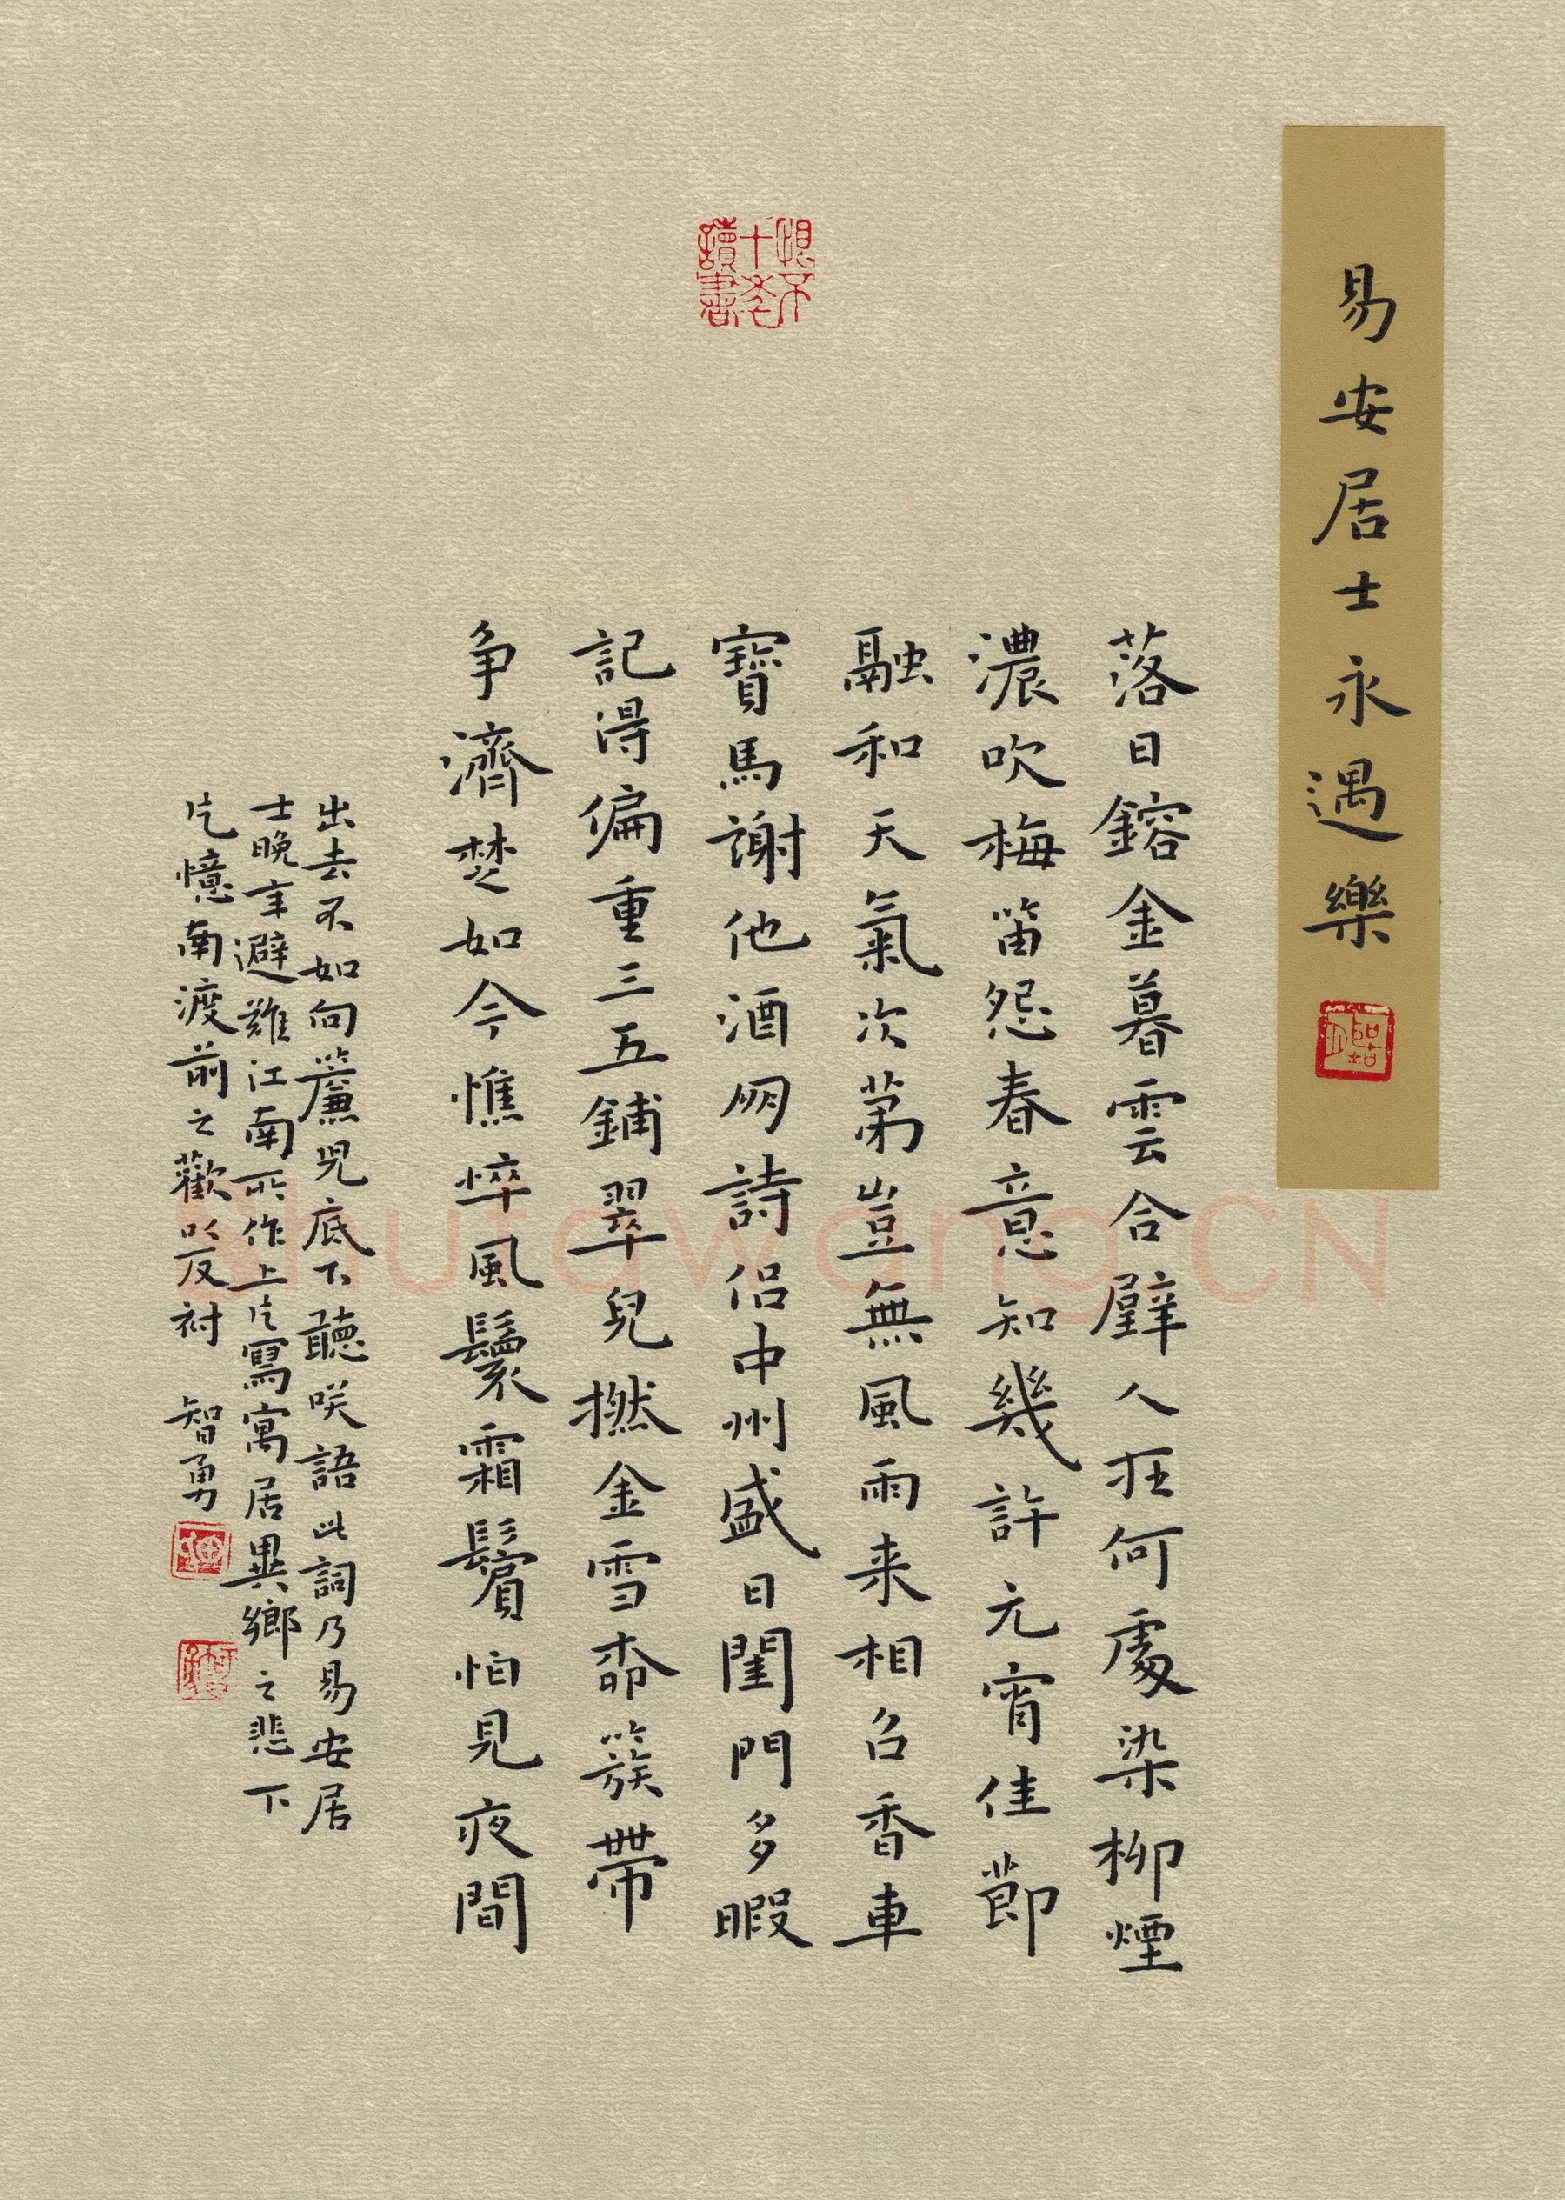 易安居士永遇樂
落日鎔金暮雲合璧人在何處染柳煙
濃吹梅笛怨春意知幾許元宵佳節
融和天氣次第豈無風雨来相召香車
寶馬謝他酒朋詩侣中州盛日閨門多暇
記得偏重三五鋪翠兒撚金雪桺簇帶
争濟楚如今憔悴風鬟霜鬢怕見夜間
出去不如向簾兒底下聽咲語此詞乃易安居
士晚年避難江南所作上片寫寓居異鄉之悲下
片憶南渡前之歡以反衬 智勇
Shufawang.CN